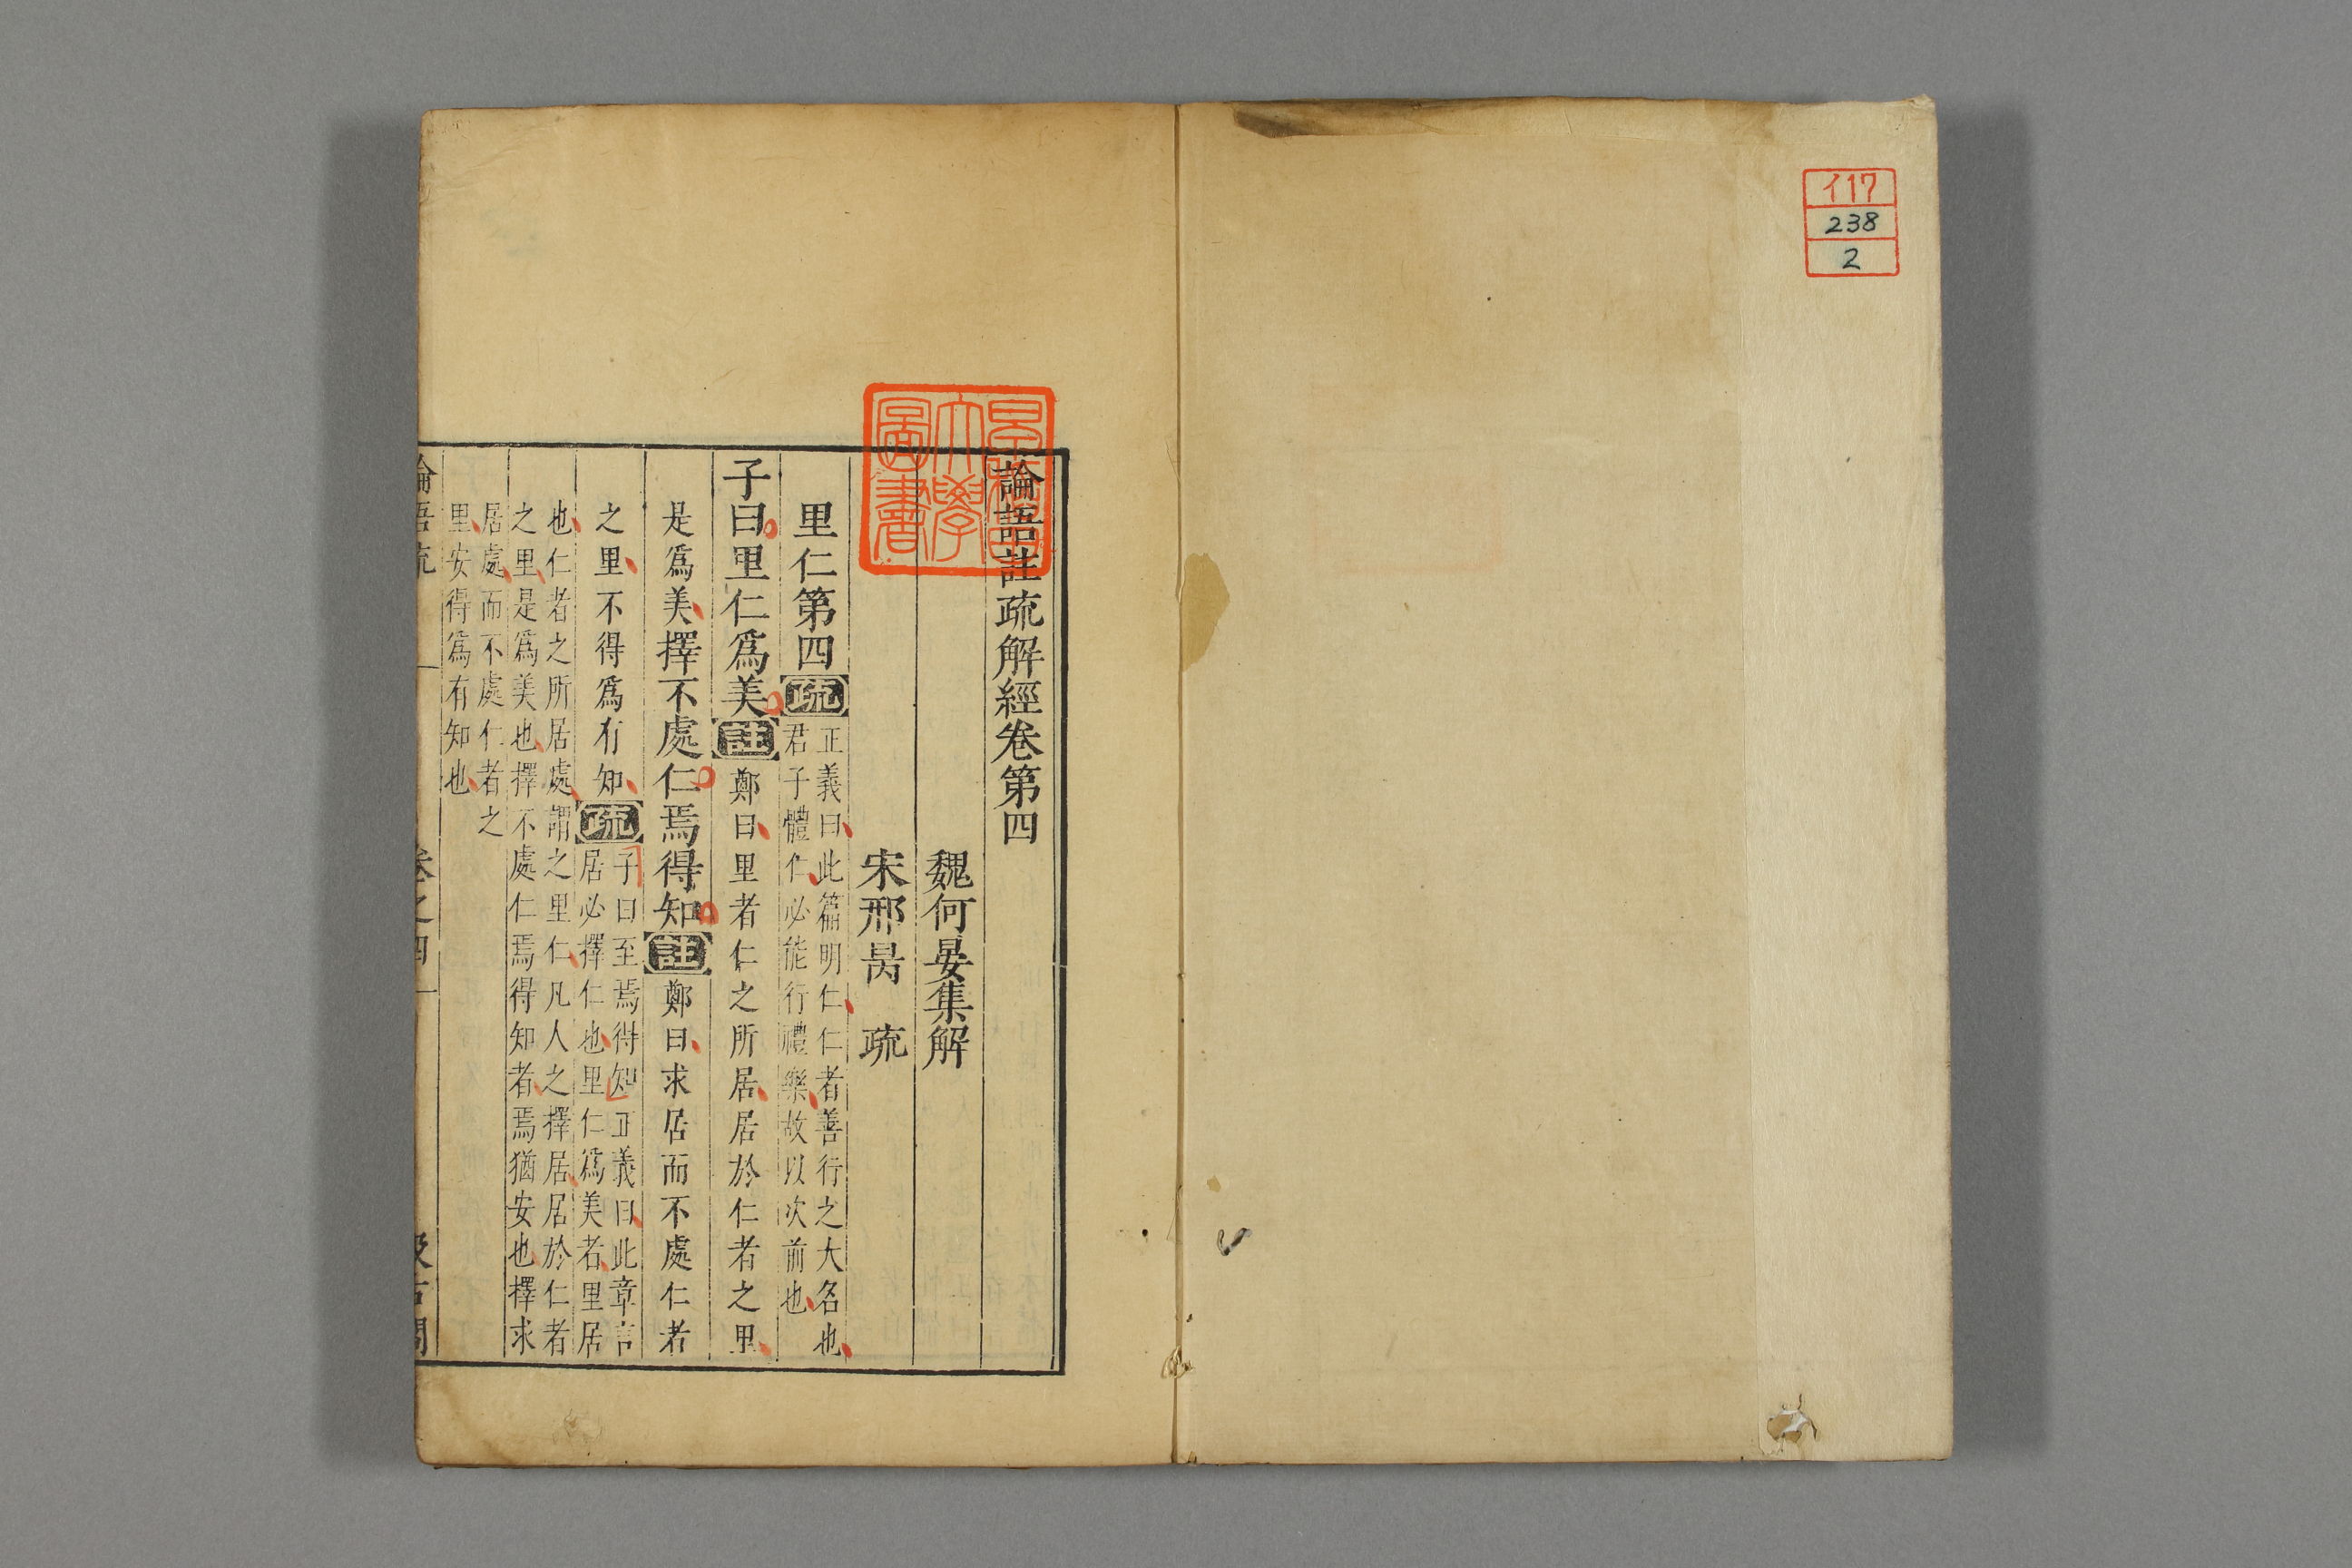 イ17
238
2
早稲田大學圖書
論語註疏解經卷第四
魏何晏集解
宋邢昺 疏
里仁第四疏正義曰此篇明仁仁者善行之大名也
君子體仁必能行禮樂故以次前也
子曰里仁爲美註鄭曰里者仁之所居居於仁者之里
是爲美擇不處仁焉得知註鄭曰求居而不處仁者
之里不得爲有知疏子曰至焉得知正義曰此章言
居必擇仁也里仁爲美者里居
也仁者之所居處謂之里仁凡人之擇居居於仁者
之里是爲美也擇不處仁焉得知者焉猶安也擇求
居處而不處仁者之
里安得爲有知也
論語疏 卷之四 一 汲古閣